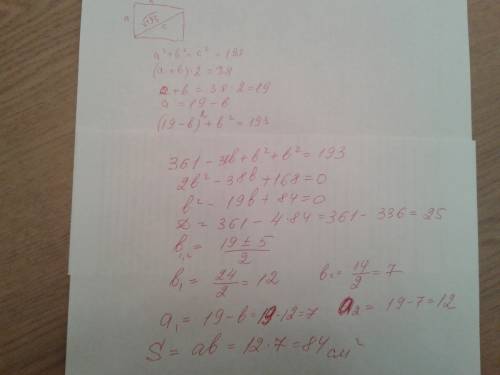 a √193 c
a² + b² = c² = 193
(a + b) · 2 = 38
a + b = 38 : 2 = 19
a = 19 - b
(19 - b)² + b² = 193
361 - 38b + b² + b² = 193
2b² - 38b + 168 = 0
b² - 19b + 84 = 0
D = 361 - 4·84 = 361 - 336 = 25
b₁,₂ = (19 ± 5)/2
b₁ = 24/2 = 12 b₂ = 14/2 = 7
a₁ = 19 - b = 19 - 12 = 7 a₂ = 19 - 7 = 12
S = ab = 12 · 7 = 84 см²